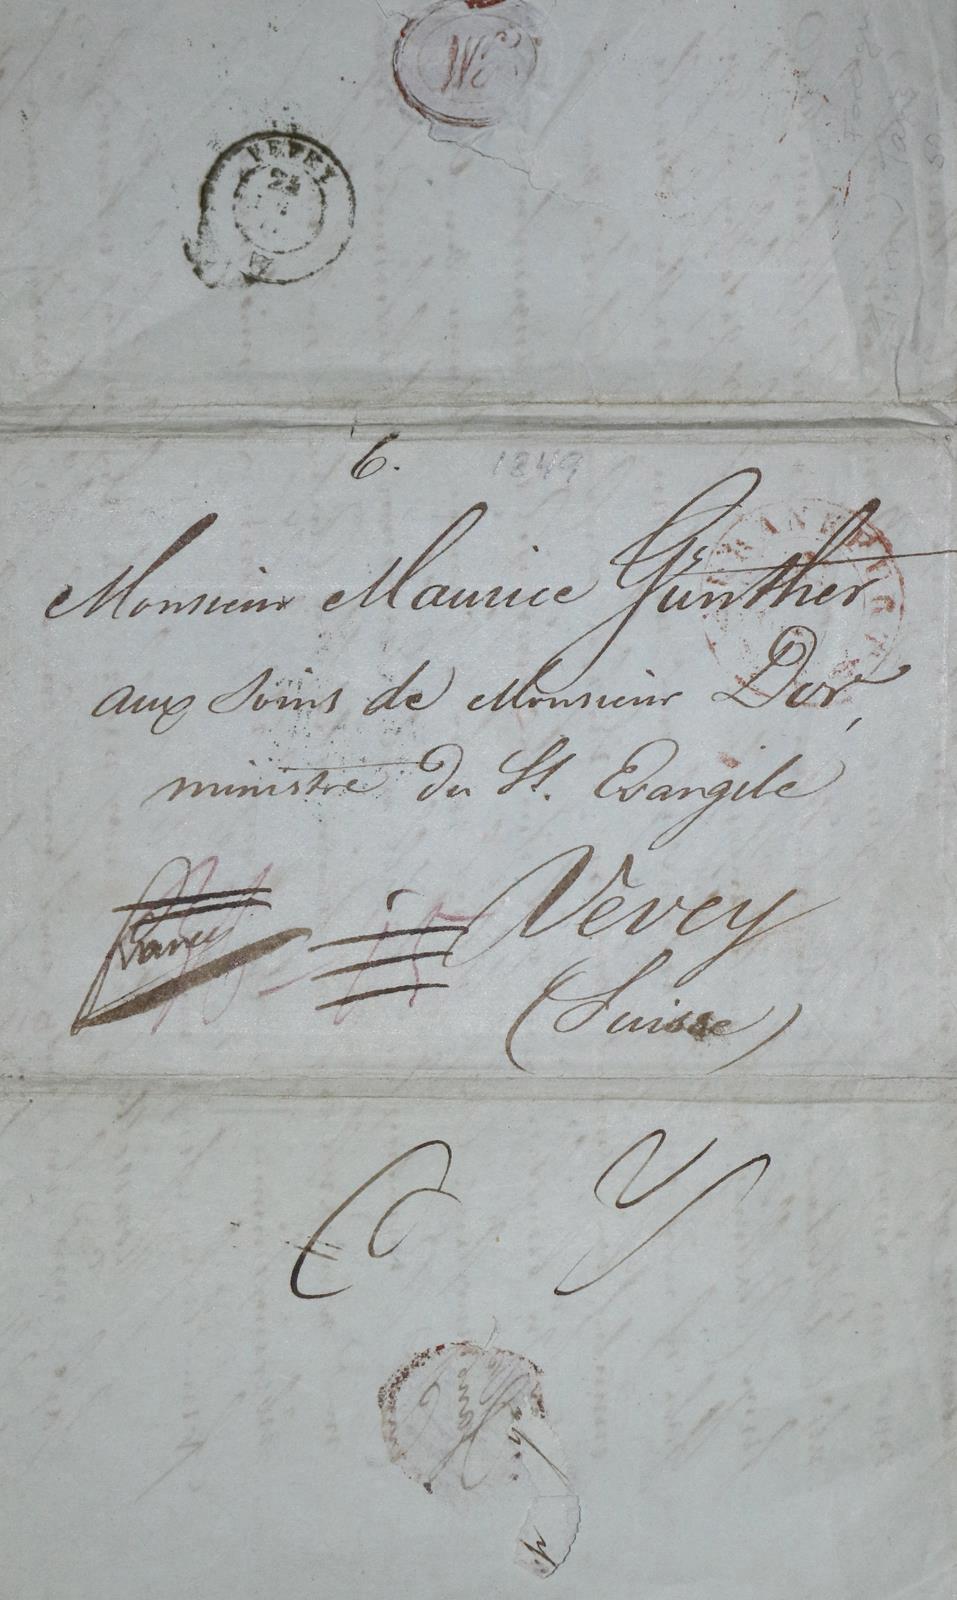 VEVEY
6.
1849
Monsieur Maurice Günther
aux soins de Monsieur Dor,
ministre du St. Evangile
franco
Vevey
(Suisse)